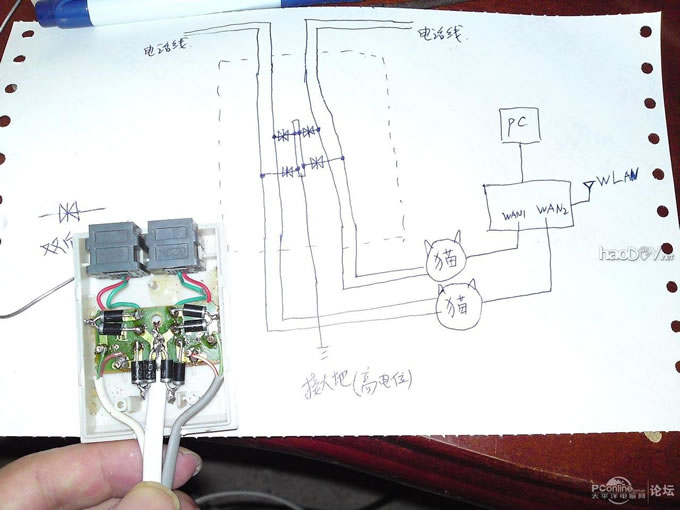 电话线
电话线
PC
WLAN
WAN1 WAN2
猫
猫
接大地(高电位)
haoDIY.net
PConline
太平洋电脑网
论坛